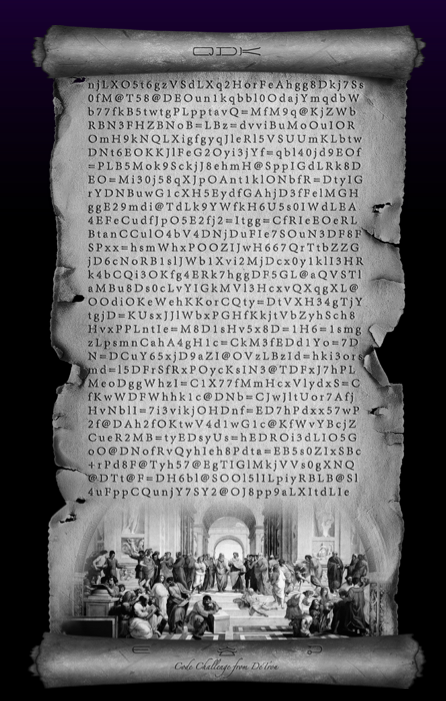 njLXO5t6gzVSdLXq2HorFeAhgg8Dkj7Ss
0fM@T58@DEOun1kqbbl0OdajYmqdbW
b77fkB5twtgPLpptavQ=MfM9q@KjZWb
RBN3FHZBNoB=LBz=dvviBuMoOuIOR
OmH9kNQLXigfgyqJleRl5VSUUmKLbtw
DNt6EOKKJlFeG2Oyi3jYf=qbl40jd9EOf
=PLB5Mok9SckjJ8ehmH@SppIGdLRk8D
EO=Mi30j58qXJpOAnt1klONbfR=DtyIG
rYDNBuwG1cXH5EydfGAhjD3fFelMGH
ggE29mdi@TdLk9YWfkH6U5s01WdLEA
4EFeCudfJpO5E2fj2=Itgg=CfRIeEOeRL
BtanCCulO4bV4DNjDuFIe7SOuN3DF8F
SPxx=hsmWhxPOOZIJwH667QrTtbZZG
jD6cNoRB1slJWb1Xvi2MjDcx0y1klI3HR
k4bCQi3OKfg4ERk7hggDF5GL@aQVSTl
aMBu8Ds0cLvYIGkMVl3HcxvQXqgXL@
OOdiOKeWehKKorCQty=DtVXH34gTjY
tgjD=KUsxJJlWbxPGHfKkjtVbZyhSch8
HvxPPLntIe=M8D1sHv5x8D=1H6=1smg
zLpsmnCahA4gH1c=CkM3fEDd1Yo=7D
N=DCuY65xjD9aZI@OVzLBzId=hki3ors
md=l5DFrSfRxPOycKsIN3@TDFxJ7hPL
MeoDggWhzl=C1X77fMmHcxVlydxS=C
fKwWDFWhhk1c@DNb=CJwJltUor7Afj
HvNblI=7i3vikjOHDnf=ED7hPdxx57wP
2f@DAh2fOKtwV4d1wG1c@KfWvYBcjZ
CueR2MB=tyEDsyUs=hEDROi3dLIO5G
oO@DNofRvQyhIeh8Pdta=EB5s0ZlxSBc
+rPd8F@Tyh57@EgTIGlMkjVVs0gXNQ
@DTt@F=DH6bl@SOOl5lILpiyRBLB@Sl
4uFppCQunjY7SY2@OJ8pp9aLXItdLIe
Code Challenge from De'Iron